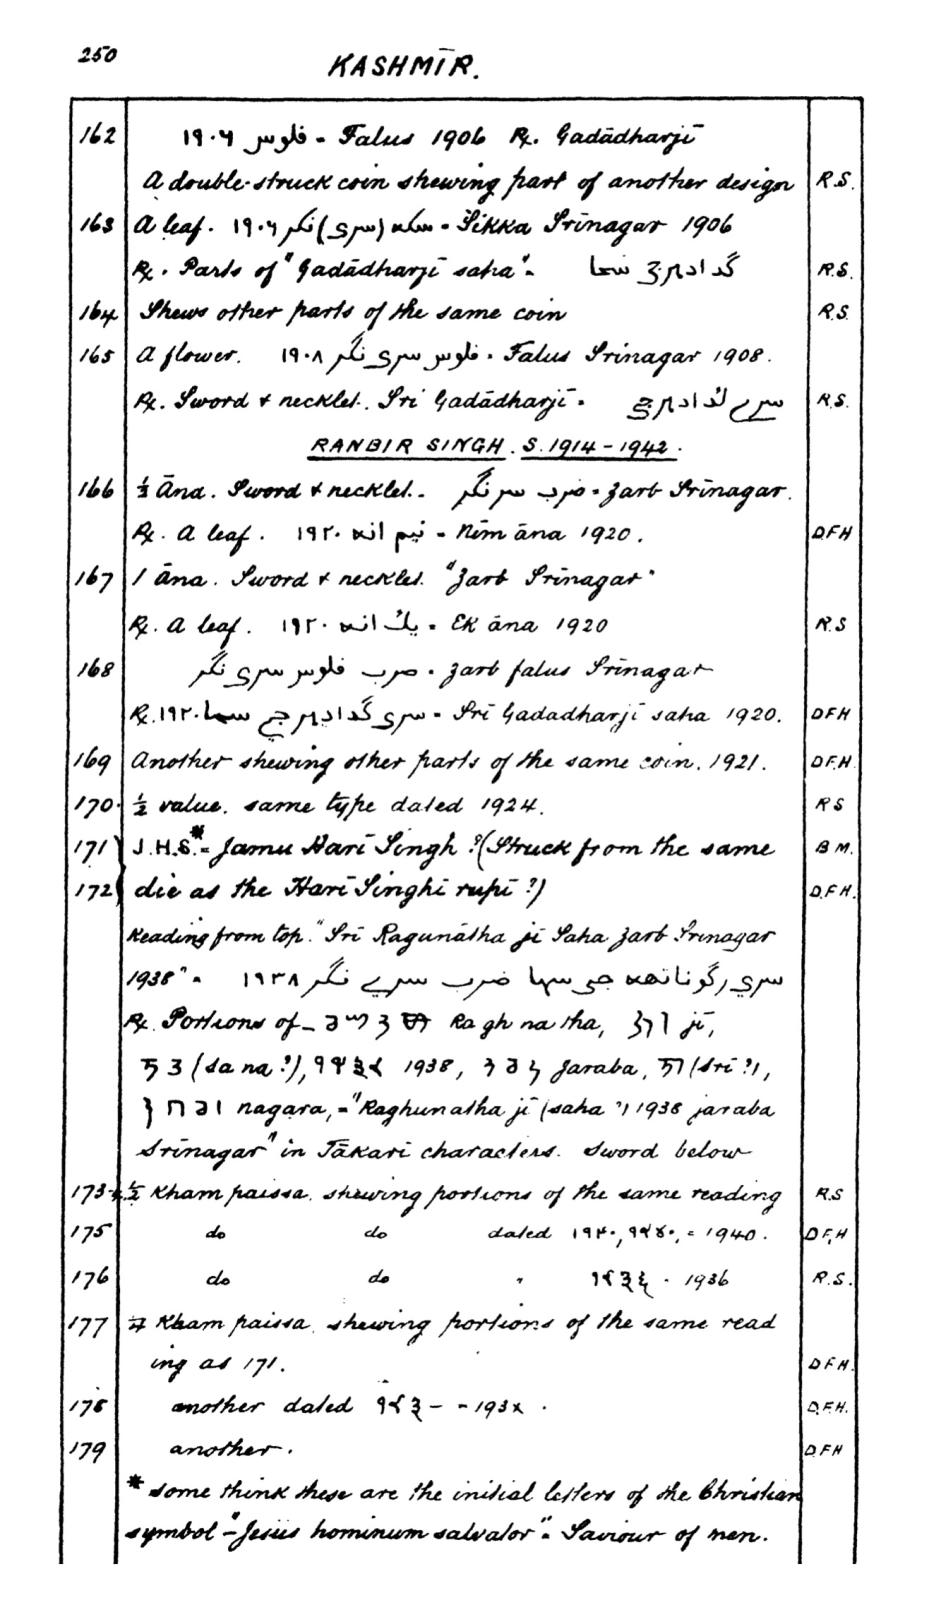 250
KASHMĪR.
162 ١٩٠٦ فلوس = Falus 1906 Rx. Gadādharjī
A double-struck coin shewing part of another design R.S.
163 A leaf. سكه (سرى) نگر ١٩٠٦ = Sikka Srīnagar 1906
Rx. Parts of "Gadādharjī saha" = گدادهرجي سها R.S.
164 Shews other parts of the same coin R.S.
165 A flower. فلوس سرى نگر ١٩٠٨ = Falus Srinagar 1908.
Rx. Sword & necklet. Sri Gadādharjī = سرے گدادهرجي R.S.
RANBIR SINGH. S. 1914-1942.
166 ½ Āna. Sword & necklet. = ضرب سر نگر = Zarb Srīnagar.
Rx. A leaf. نيم انه ١٩٢٠ = Nīm āna 1920. D.F.H
167 1 āna. Sword & necklet. "Zarb Srīnagar"
Rx. A leaf. يك انه ١٩٢٠ = Ek āna 1920 R.S
168 ضرب فلوس سرى نگر = Zarb falus Srīnagar
Rx. سرى گدادهرجي سها ١٩٢٠ = Srī Gadadharjī saha 1920. D.F.H
169 Another shewing other parts of the same coin. 1921. D.F.H.
170. ½ value. same type dated 1924. R S
171 J.H.S.* = Jamu Harī Singh ? (Struck from the same B M.
172 die as the Harī Singhī rupī ?) D.F.H.
Reading from top. "Srī Ragunātha jī Saha Zarb Srinagar
1938" = سري رگوناتهه جى سها ضرب سرے نگر ١٩٣٨
Rx. Portions of - Ragh na tha, jī,
(sa na ?), 1938, Jaraba, (Srī ?),
nagara, = "Raghunatha jī (saha ?) 1938 jaraba
Srīnagar" in Tākarī characters. Sword below
173-4 ½ Kham paissa. shewing portions of the same reading R.S
175 do do dated ١٩٤٠, १९४०, = 1940. D.F.H
176 do do " १९३६ = 1936 R.S.
177 Kham paissa. shewing portions of the same read
ing as 171. D.F.H.
178 another dated १९३- = 193x. D.F.H.
179 another. D.F.H
* some think these are the initial letters of the Christian
symbol - "Jesus hominum salvator" = Saviour of men.